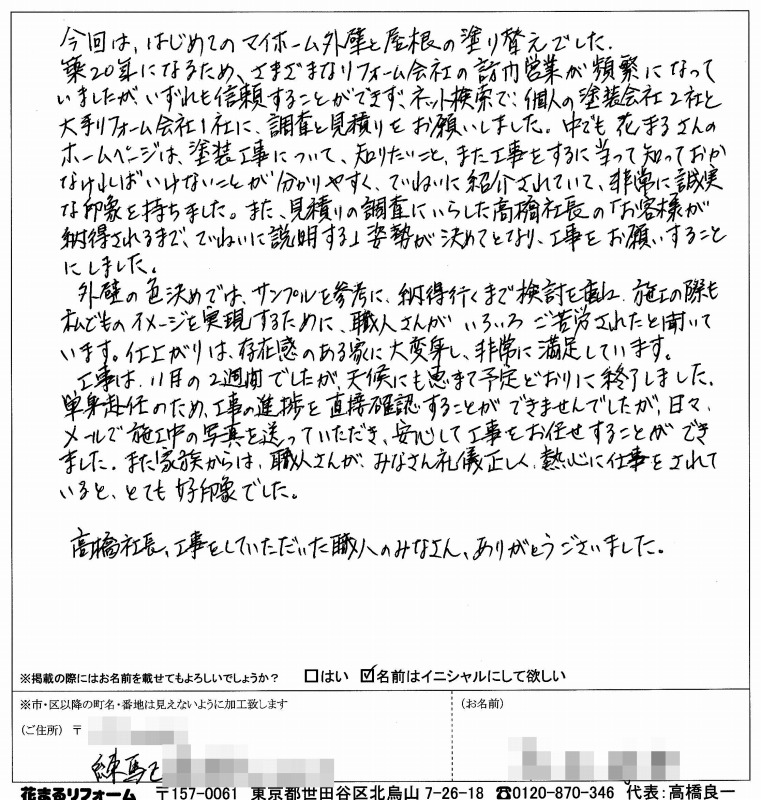 今回は、はじめてのマイホーム外壁と屋根の塗り替えでした。
築20年になるため、さまざまなリフォーム会社の訪問営業が頻繁になって
いましたが、いずれも信頼することができず、ネット検索で、個人の塗装会社2社と
大手リフォーム会社1社に、調査と見積りをお願いしました。中でも花まるさんの
ホームページは、塗装工事について、知りたいこと、また工事をするに当って知っておか
なければいけないことが分かりやすく、ていねいに紹介されていて、非常に誠実
な印象を持ちました。また、見積りの調査にいらした高橋社長の「お客様が
納得されるまで、ていねいに説明する」姿勢が決めてとなり、工事をお願いすること
にしました。
外壁の色決めでは、サンプルを参考に、納得行くまで検討を重ね、施工の際も
私どものイメージを実現するために、職人さんがいろいろご苦労されたと聞いて
います。仕上がりは、存在感のある家に大変身し、非常に満足しています。
工事は、11月の2週間でしたが、天候にも恵まて予定どおりに終了しました。
単身赴任のため、工事の進捗を直接確認することができませんでしたが、日々、
メールで施工中の写真を送っていただき、安心して工事をお任せすることができ
ました。また家族からは、職人さんが、みなさん礼儀正しく、熱心に仕事をされて
いると、とても好印象でした。
高橋社長、工事をしていただいた職人のみなさん、ありがとうございました。
※掲載の際にはお名前を載せてもよろしいでしょうか？ □はい ☑名前はイニシャルにして欲しい
※市・区以降の町名・番地は見えないように加工致します
(お名前)
(ご住所) 〒
練馬区
花まるリフォーム 〒157-0061 東京都世田谷区北烏山7-26-18 ☎0120-870-346 代表:高橋良一